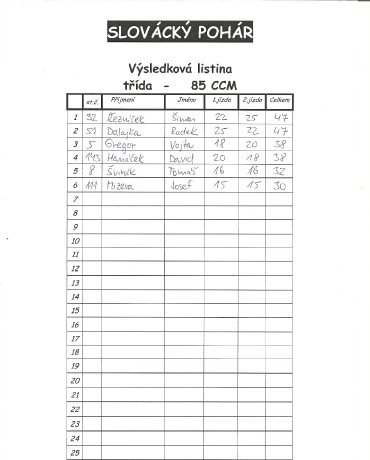 SLOVÁCKÝ POHÁR
Výsledková listina
třída - 85 CCM
st.č. Příjmení Jméno 1.jízda 2.jízda Celkem
1 92 Řezníček Šimon 22 25 47
2 51 Dalajka Radek 25 22 47
3 5 Gregor Vojta 18 20 38
4 Hanáček David 20 18 38
5 8 Tomáš 16 16 32
6 111 Mizera Josef 15 15 30
7
8
9
10
11
12
13
14
15
16
17
18
19
20
21
22
23
24
25